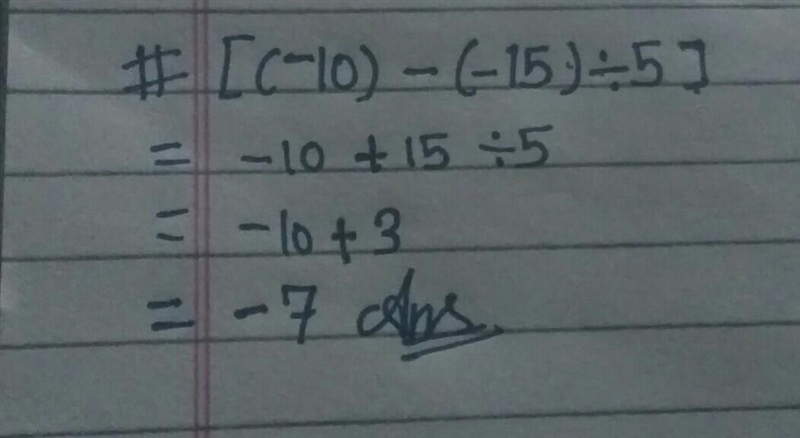 # [(-10) - (-15) ÷ 5]
= -10 + 15 ÷ 5
= -10 + 3
= -7 Ans